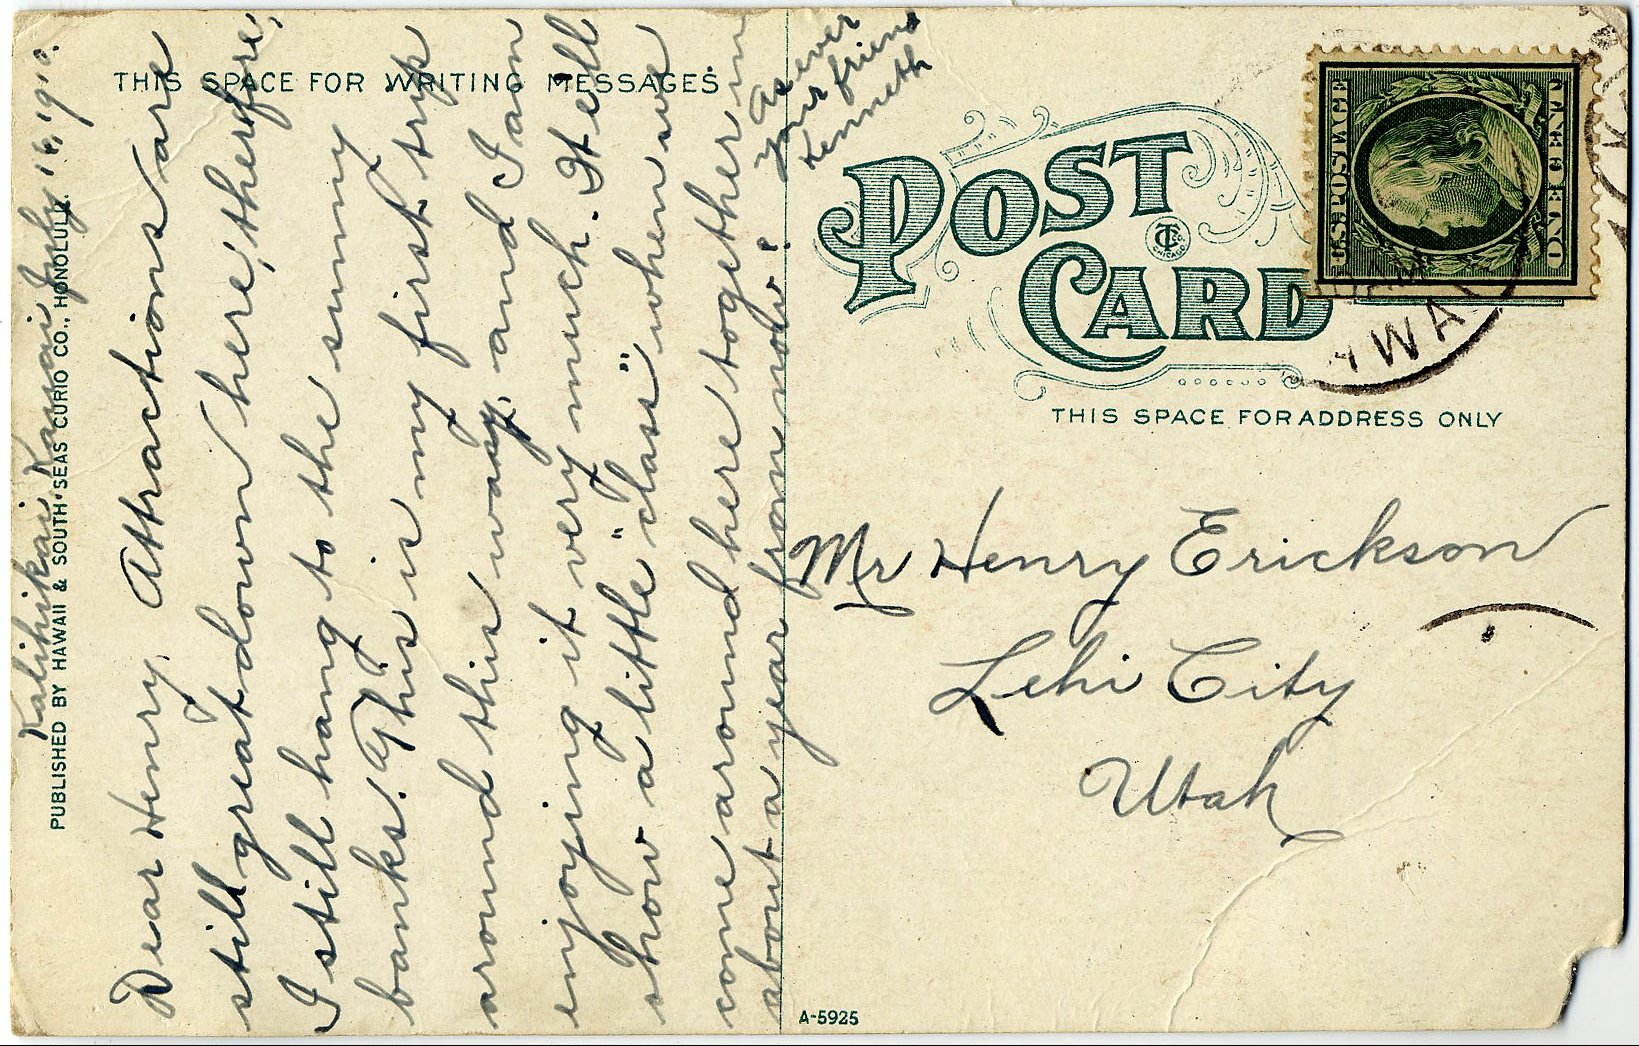 Kalihikai Kauai July 16, 1910.
Dear Henry, Attractions are
still great down here, therefore,
I still hang to the sunny
banks. This is my first trip
around this way, and I am
enjoying it very much. It'ell
show a little "class" when we
come around here together in
about a year from now.
As ever
your friend
Kenneth
THIS SPACE FOR WRITING MESSAGES
PUBLISHED BY HAWAII & SOUTH SEAS CURIO CO., HONOLULU.
POST
CARD
CHICAGO
U.S. POSTAGE
ONE CENT
AWA
THIS SPACE FOR ADDRESS ONLY
Mr Henry Erickson
Lehi City
Utah
A-5925